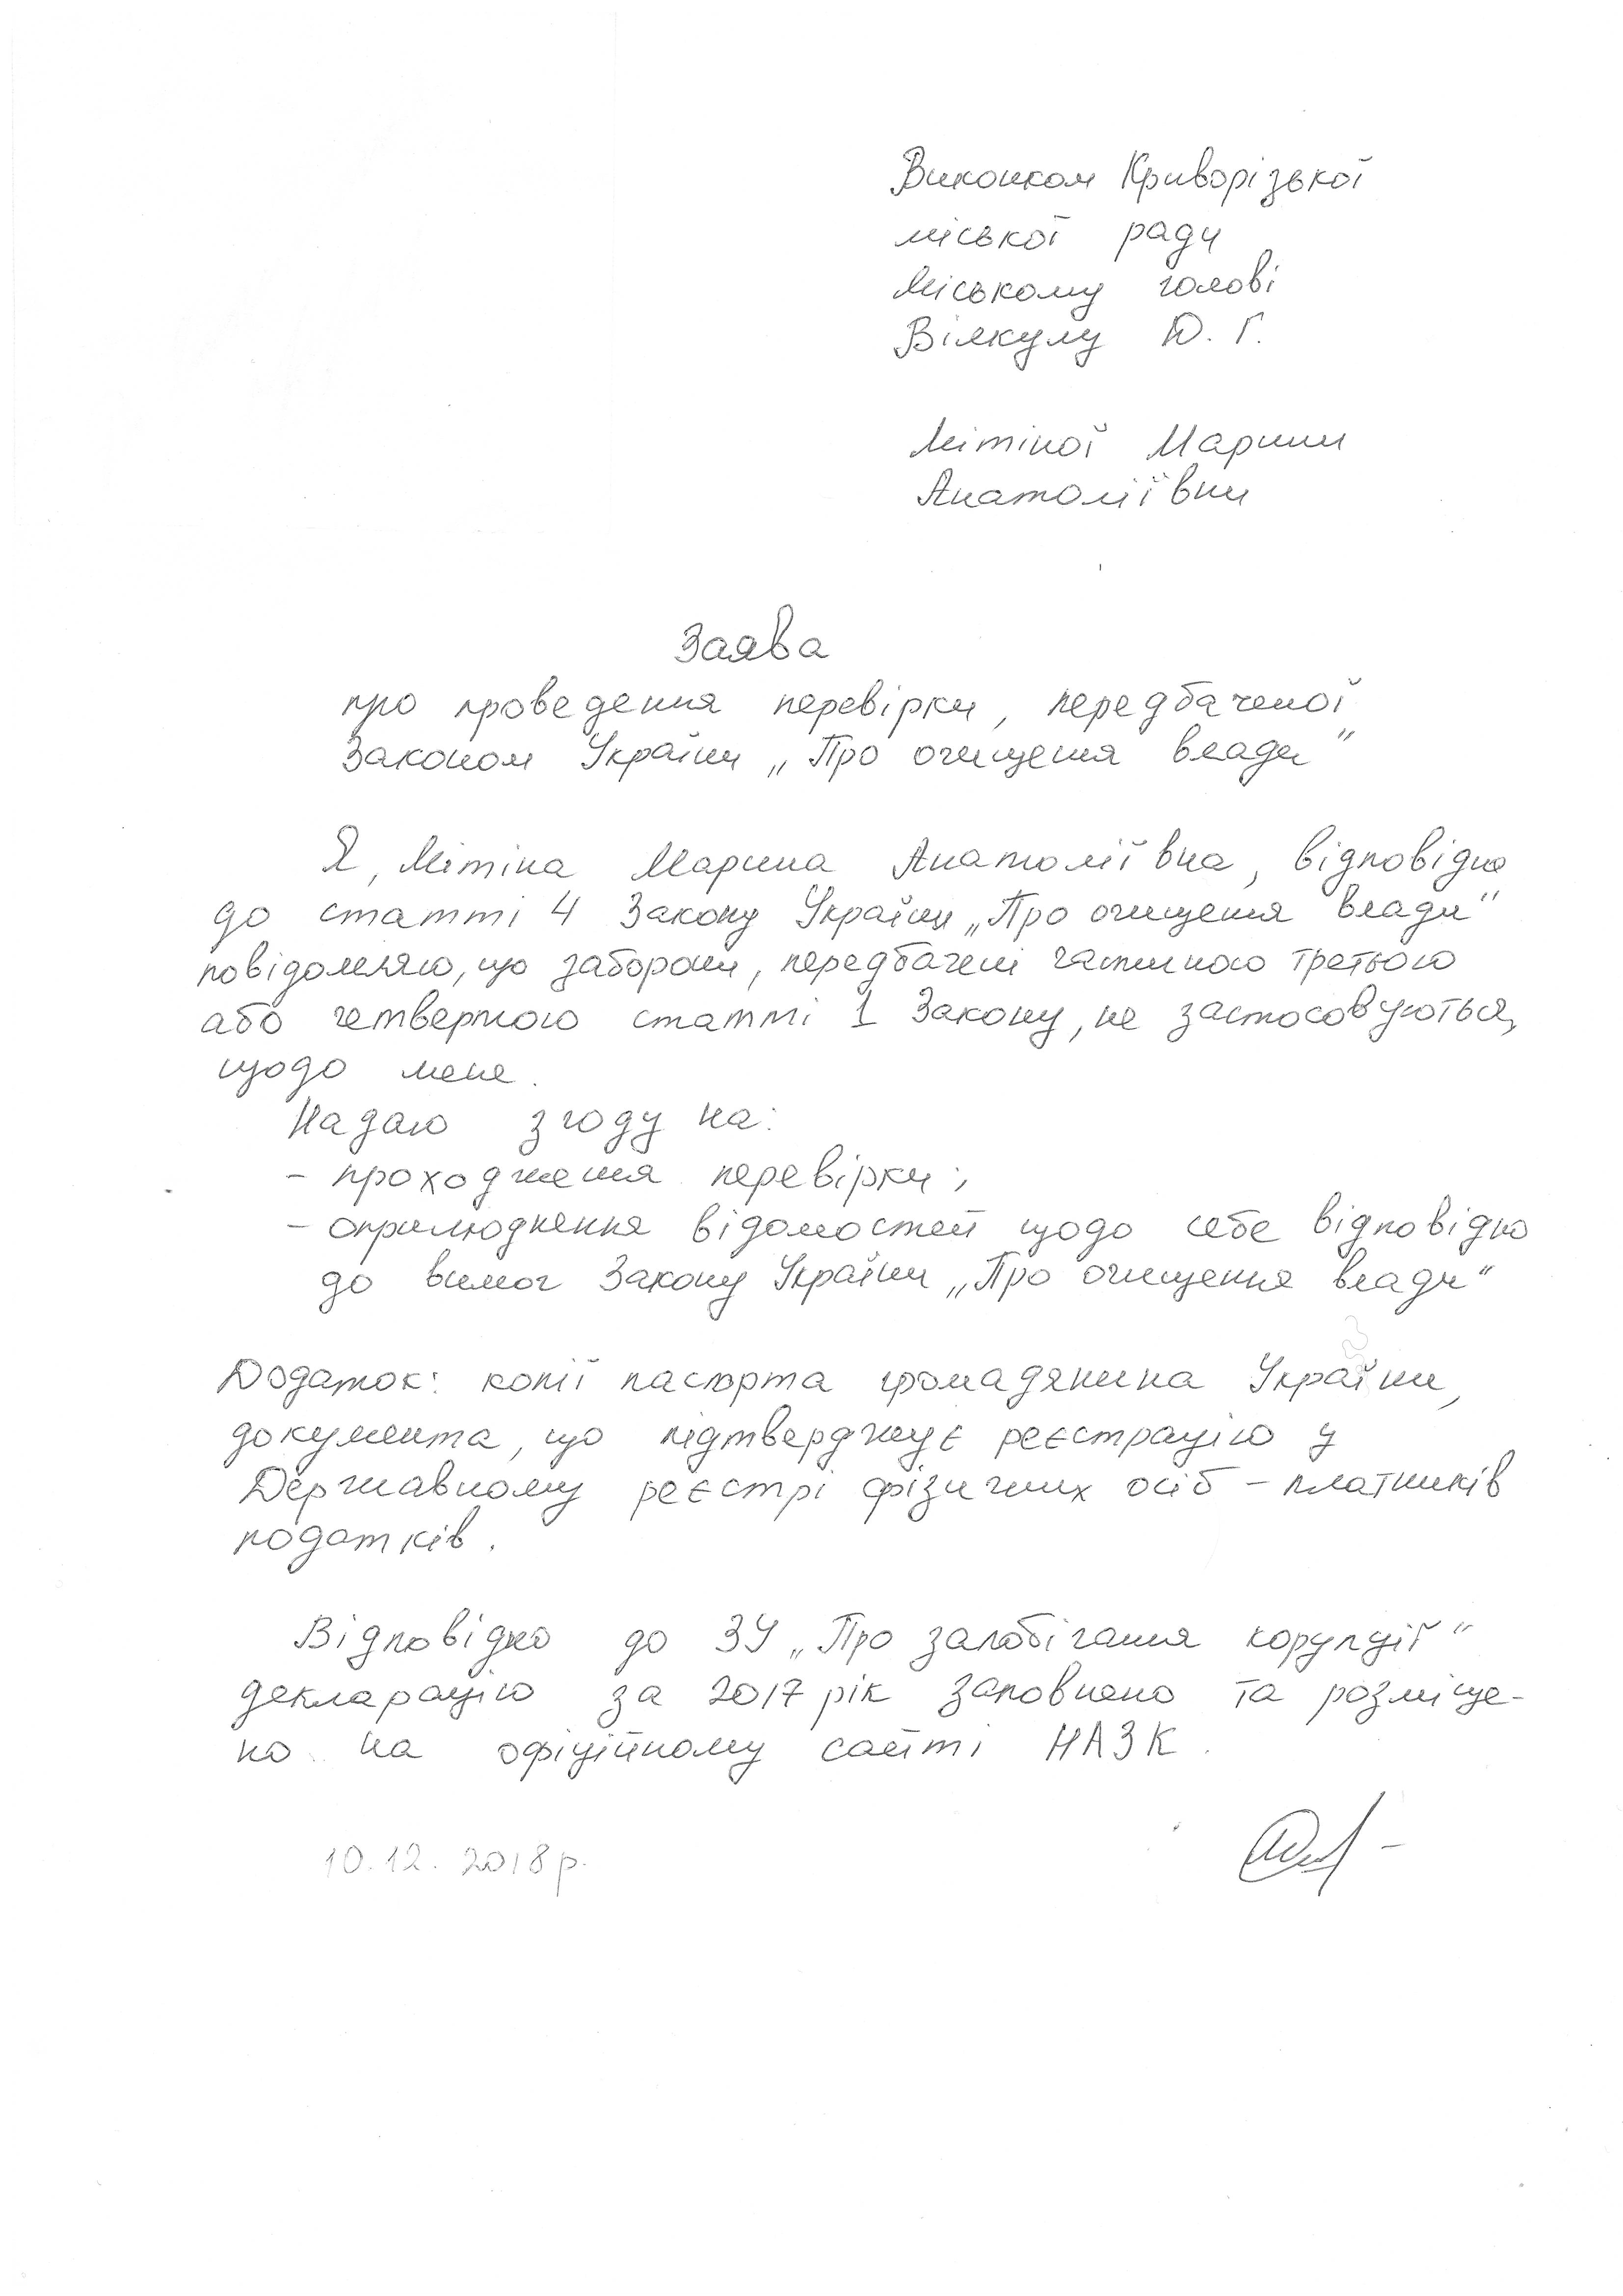 Виконком Криворізької
міської ради
Міському голові
Вілкулу Ю. Г.
Мітіної Марини
Анатоліївни
Заява
про проведення перевірки, передбаченої
Законом України „Про очищення влади"
Я, Мітіна Марина Анатоліївна, відповідно
до статті 4 Закону України „Про очищення влади"
повідомляю, що заборони, передбачені частиною третьою
або четвертою статті 1 Закону, не застосовуються,
щодо мене.
Надаю згоду на:
- проходження перевірки;
- оприлюднення відомостей щодо себе відповідно
до вимог Закону України „Про очищення влади"
Додаток: копії паспорта громадянина України,
документа, що підтверджує реєстрацію у
Державному реєстрі фізичних осіб - платників
податків.
Відповідно до ЗУ „Про запобігання корупції"
декларацію за 2017 рік заповнено та розміще-
но на офіційному сайті НАЗК.
10.12.2018 р.